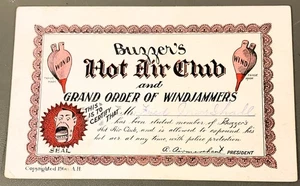 Buzzer's
Hot Air Club
and
GRAND ORDER OF WINDJAMMERS
WIND
WIND
THIS
IS TO
CERTIFY
THAT
has been elected member of Buzzer's
Hot Air Club, and is allowed to expound his
hot air at any time, with police protection.
SEAL
PRESIDENT
Copyrighted